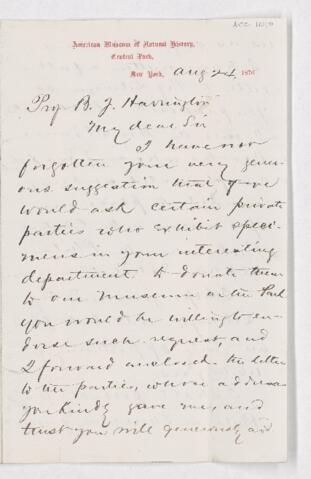 ACC 1050
American Museum of Natural History,
Central Park,
New York, Aug 24 1876
Prof B. J. Harrington
My dear Sir
I have not
forgotten your very gener-
ous suggestion that if we
would ask certain private
parties who exhibit speci-
mens in your interesting
department to donate them
to our Museum in the Park
you would be willing to en-
dorse such request, and
I forward enclosed the letter
to the parties, whose address
you kindly gave me, and
trust you will generously add